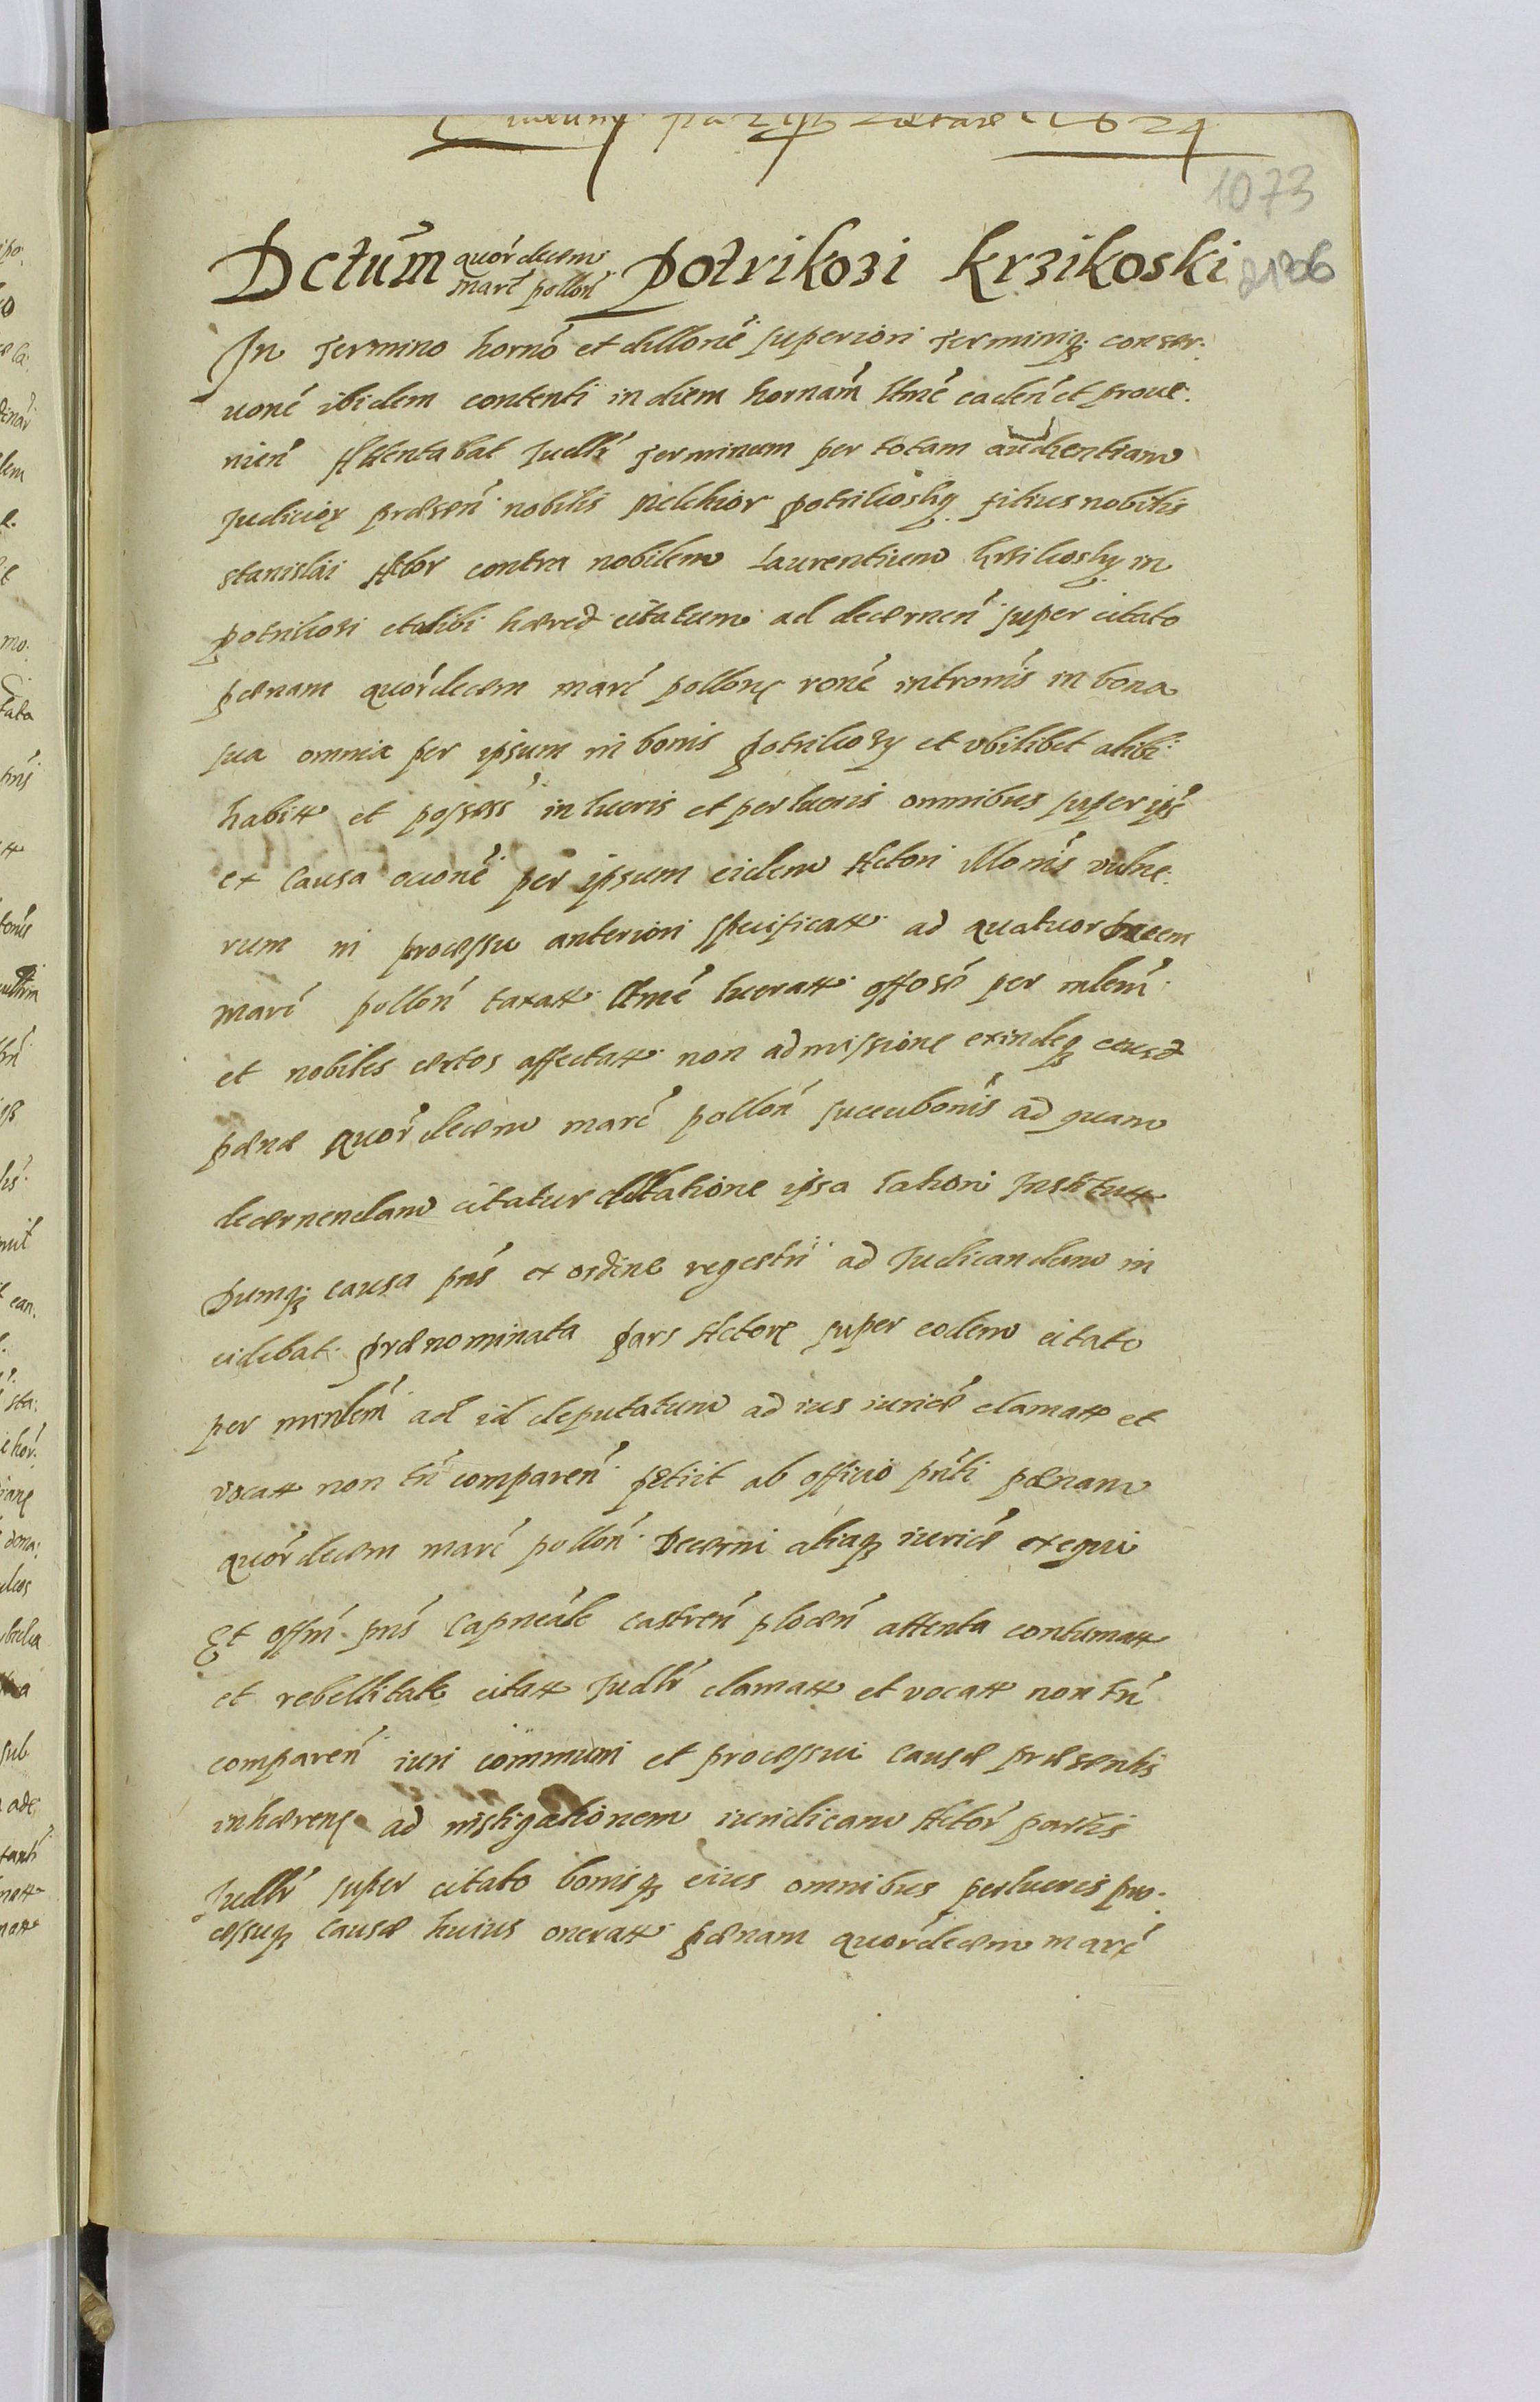 1624
1073
Dctum quór decem marc pollon Potrikozi Krzikoski
In Termino hornó et dillone superiori Terminiq conser:
uoné ibidem contenti in diem hornam ltmé cadén et proue:
nién Attentabat Judlr Terminum per totam audientiam
Judicioꝝ præsen nobilis Melchior Potrikosky filius nobilis
stanislai Actor contra nobilem Laurentium Krzikosky in
Potrikozi et alibi hæred citatum ad decernen super citato
pænam quór decem marc pollonę roné intronís in bona
sua omnia per ipsum in bonis Potrikozy et vbilibet alibi
habitt et possess in lucris et perlucris omnibus super ips
ex causa per ipsum eidem Actori illonís vulne:
rum in processu anteriori specificatt ad quatuordecem
marc pollon taxatt ltmé lucratt offosé per mlem
et nobiles certos affectatt non admissione exindeq eiusd
pænæ quór decem marc pollon succubonís ad quam
decernendam citatur citatione ipsa latiori Institutt
Dumq causa pns ex ordine regestri ad Judicandum in
cidebat prænominata pars Actorę super eodem citato
per minlem ad id deputatum ad ius iurice clamatt et
vocatt non tn comparen petiit ab officio pnti pænam
quór decem marc pollon Decerni aliaq iurice exequi
Et offm pns Capneale castren plocen attenta contumatt
et rebellitate citatt Judlr clamatt et vocatt non tn
comparen iuri communi et processui causæ præsentis
inhærenę ad instigationem iuridicam Actor partis
Judlr super citato bonisq eius omnibus perlucris pro:
cessuq causæ huius oneratt pænam quór decem marc